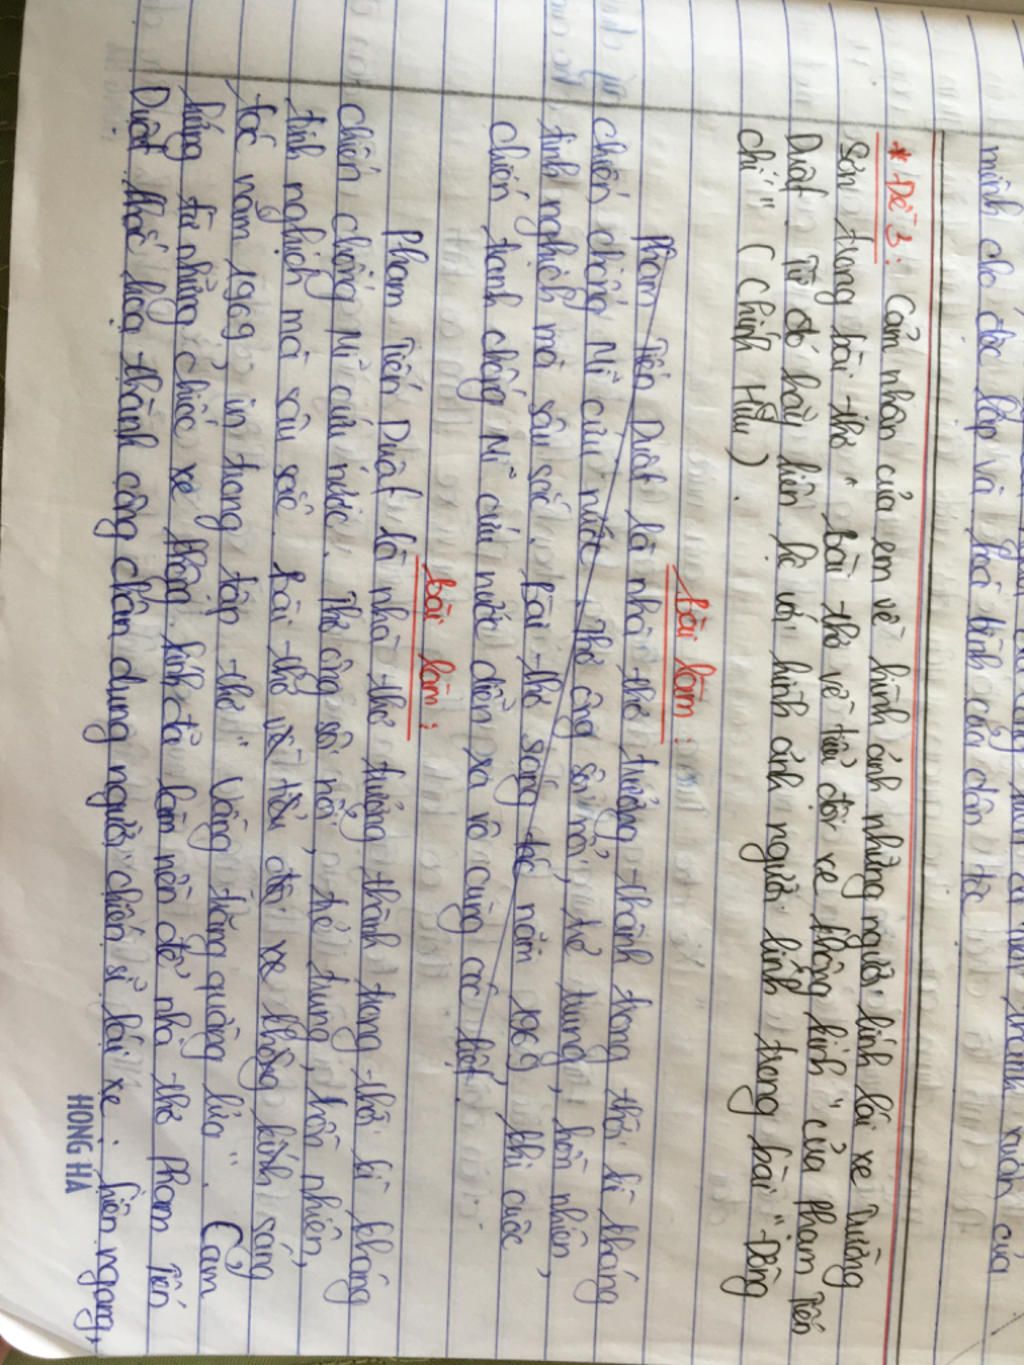 mình cho độc lập và hoà bình của dân tộc
* Đề 3: Cảm nhận của em về hình ảnh những người lính lái xe Trường
Sơn trong bài thơ " bài thơ về tiểu đội xe không kính " của Phạm Tiến
Duật. Từ đó hãy liên hệ với hình ảnh người lính trong bài "Đồng
chí" ( Chính Hữu ).
bài làm:
Phạm Tiến Duật là nhà thơ trưởng thành trong thời kì kháng
chiến chống Mĩ cứu nước. Thơ ông sôi nổi, trẻ trung, hồn nhiên,
tinh nghịch mà sâu sắc. Bài thơ sáng tác năm 1969 khi cuộc
chiến tranh chống Mĩ cứu nước diễn ra vô cùng ác liệt.
bài làm:
Phạm Tiến Duật là nhà thơ trưởng thành trong thời kì kháng
chiến chống Mĩ cứu nước. Thơ ông sôi nổi, trẻ trung, hồn nhiên,
tinh nghịch mà sâu sắc. Bài thơ về tiểu đội xe không kính sáng
tác năm 1969, in trong tập thơ " Vầng trăng quầng lửa". Cảm
hứng từ những chiếc xe không kính đã làm nền để nhà thơ Phạm Tiến
Duật khắc hoạ thành công chân dung người chiến sĩ lái xe: hiên ngang,
HONG HA